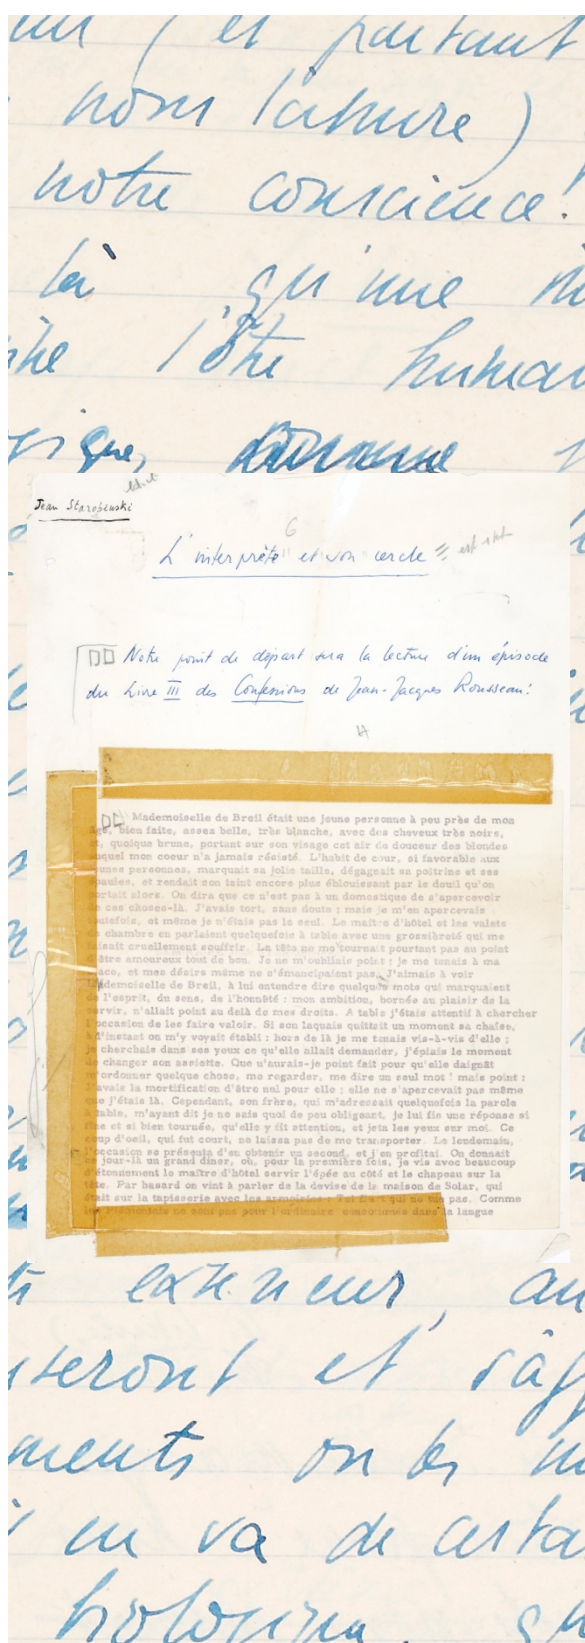 ( et partant
nous
notre conscience!
là qu'une
l'être humai
Jean Starobinski
6
L'interprète et son cercle
Notre point de départ sera la lecture d'un épisode
du Livre III des Confessions de Jean-Jacques Rousseau :
Mademoiselle de Breil était une jeune personne à peu près de mon
âge, bien faite, assez belle, très blanche, avec des cheveux très noirs,
et, quoique brune, portant sur son visage cet air de douceur des blondes
auquel mon coeur n'a jamais résisté. L'habit de cour, si favorable aux
jeunes personnes, marquait sa jolie taille, dégageait sa poitrine et ses
épaules, et rendait son teint encore plus éblouissant par le deuil qu'on
portait alors. On dira que ce n'est pas à un domestique de s'apercevoir
de ces choses-là. J'avais tort, sans doute ; mais je m'en apercevais
toutefois, et même je n'étais pas le seul. Le maître d'hôtel et les valets
de chambre en parlaient quelquefois à table avec une grossièreté qui me
faisait cruellement souffrir. La tête ne me tournait pourtant pas au point
d'être amoureux tout de bon. Je ne m'oubliais point ; je me tenais à ma
place, et mes désirs même ne s'émancipaient pas. J'aimais à voir
Mademoiselle de Breil, à lui entendre dire quelques mots qui marquaient
de l'esprit, du sens, de l'honnêté : mon ambition, bornée au plaisir de la
servir, n'allait point au delà de mes droits. A table j'étais attentif à chercher
l'occasion de les faire valoir. Si son laquais quittait un moment sa chaise,
à l'instant on m'y voyait établi : hors de là je me tenais vis-à-vis d'elle ;
je cherchais dans ses yeux ce qu'elle allait demander, j'épiais le moment
de changer son assiette. Que n'aurais-je point fait pour qu'elle daignât
m'ordonner quelque chose, me regarder, me dire un seul mot ! mais point :
j'avais la mortification d'être nul pour elle ; elle ne s'apercevait pas même
que j'étais là. Cependant, son frère, qui m'adressait quelquefois la parole
à table, m'ayant dit je ne sais quoi de peu obligeant, je lui fis une réponse si
fine et si bien tournée, qu'elle y fit attention, et jeta les yeux sur moi. Ce
coup d'oeil, qui fut court, ne laissa pas de me transporter. Le lendemain,
l'occasion se présenta d'en obtenir un second, et j'en profitai. On donnait
ce jour-là un grand dîner, où, pour la première fois, je vis avec beaucoup
d'étonnement le maître d'hôtel servir l'épée au côté et le chapeau sur la
tête. Par hasard on vint à parler de la devise de la maison de Solar, qui
était sur la tapisserie avec les armoiries : Tel fiert qui ne tue pas. Comme
les Piémontais ne sont pas pour l'ordinaire consommés dans la langue
extérieur, au
seront et
ments on les
en va de certa